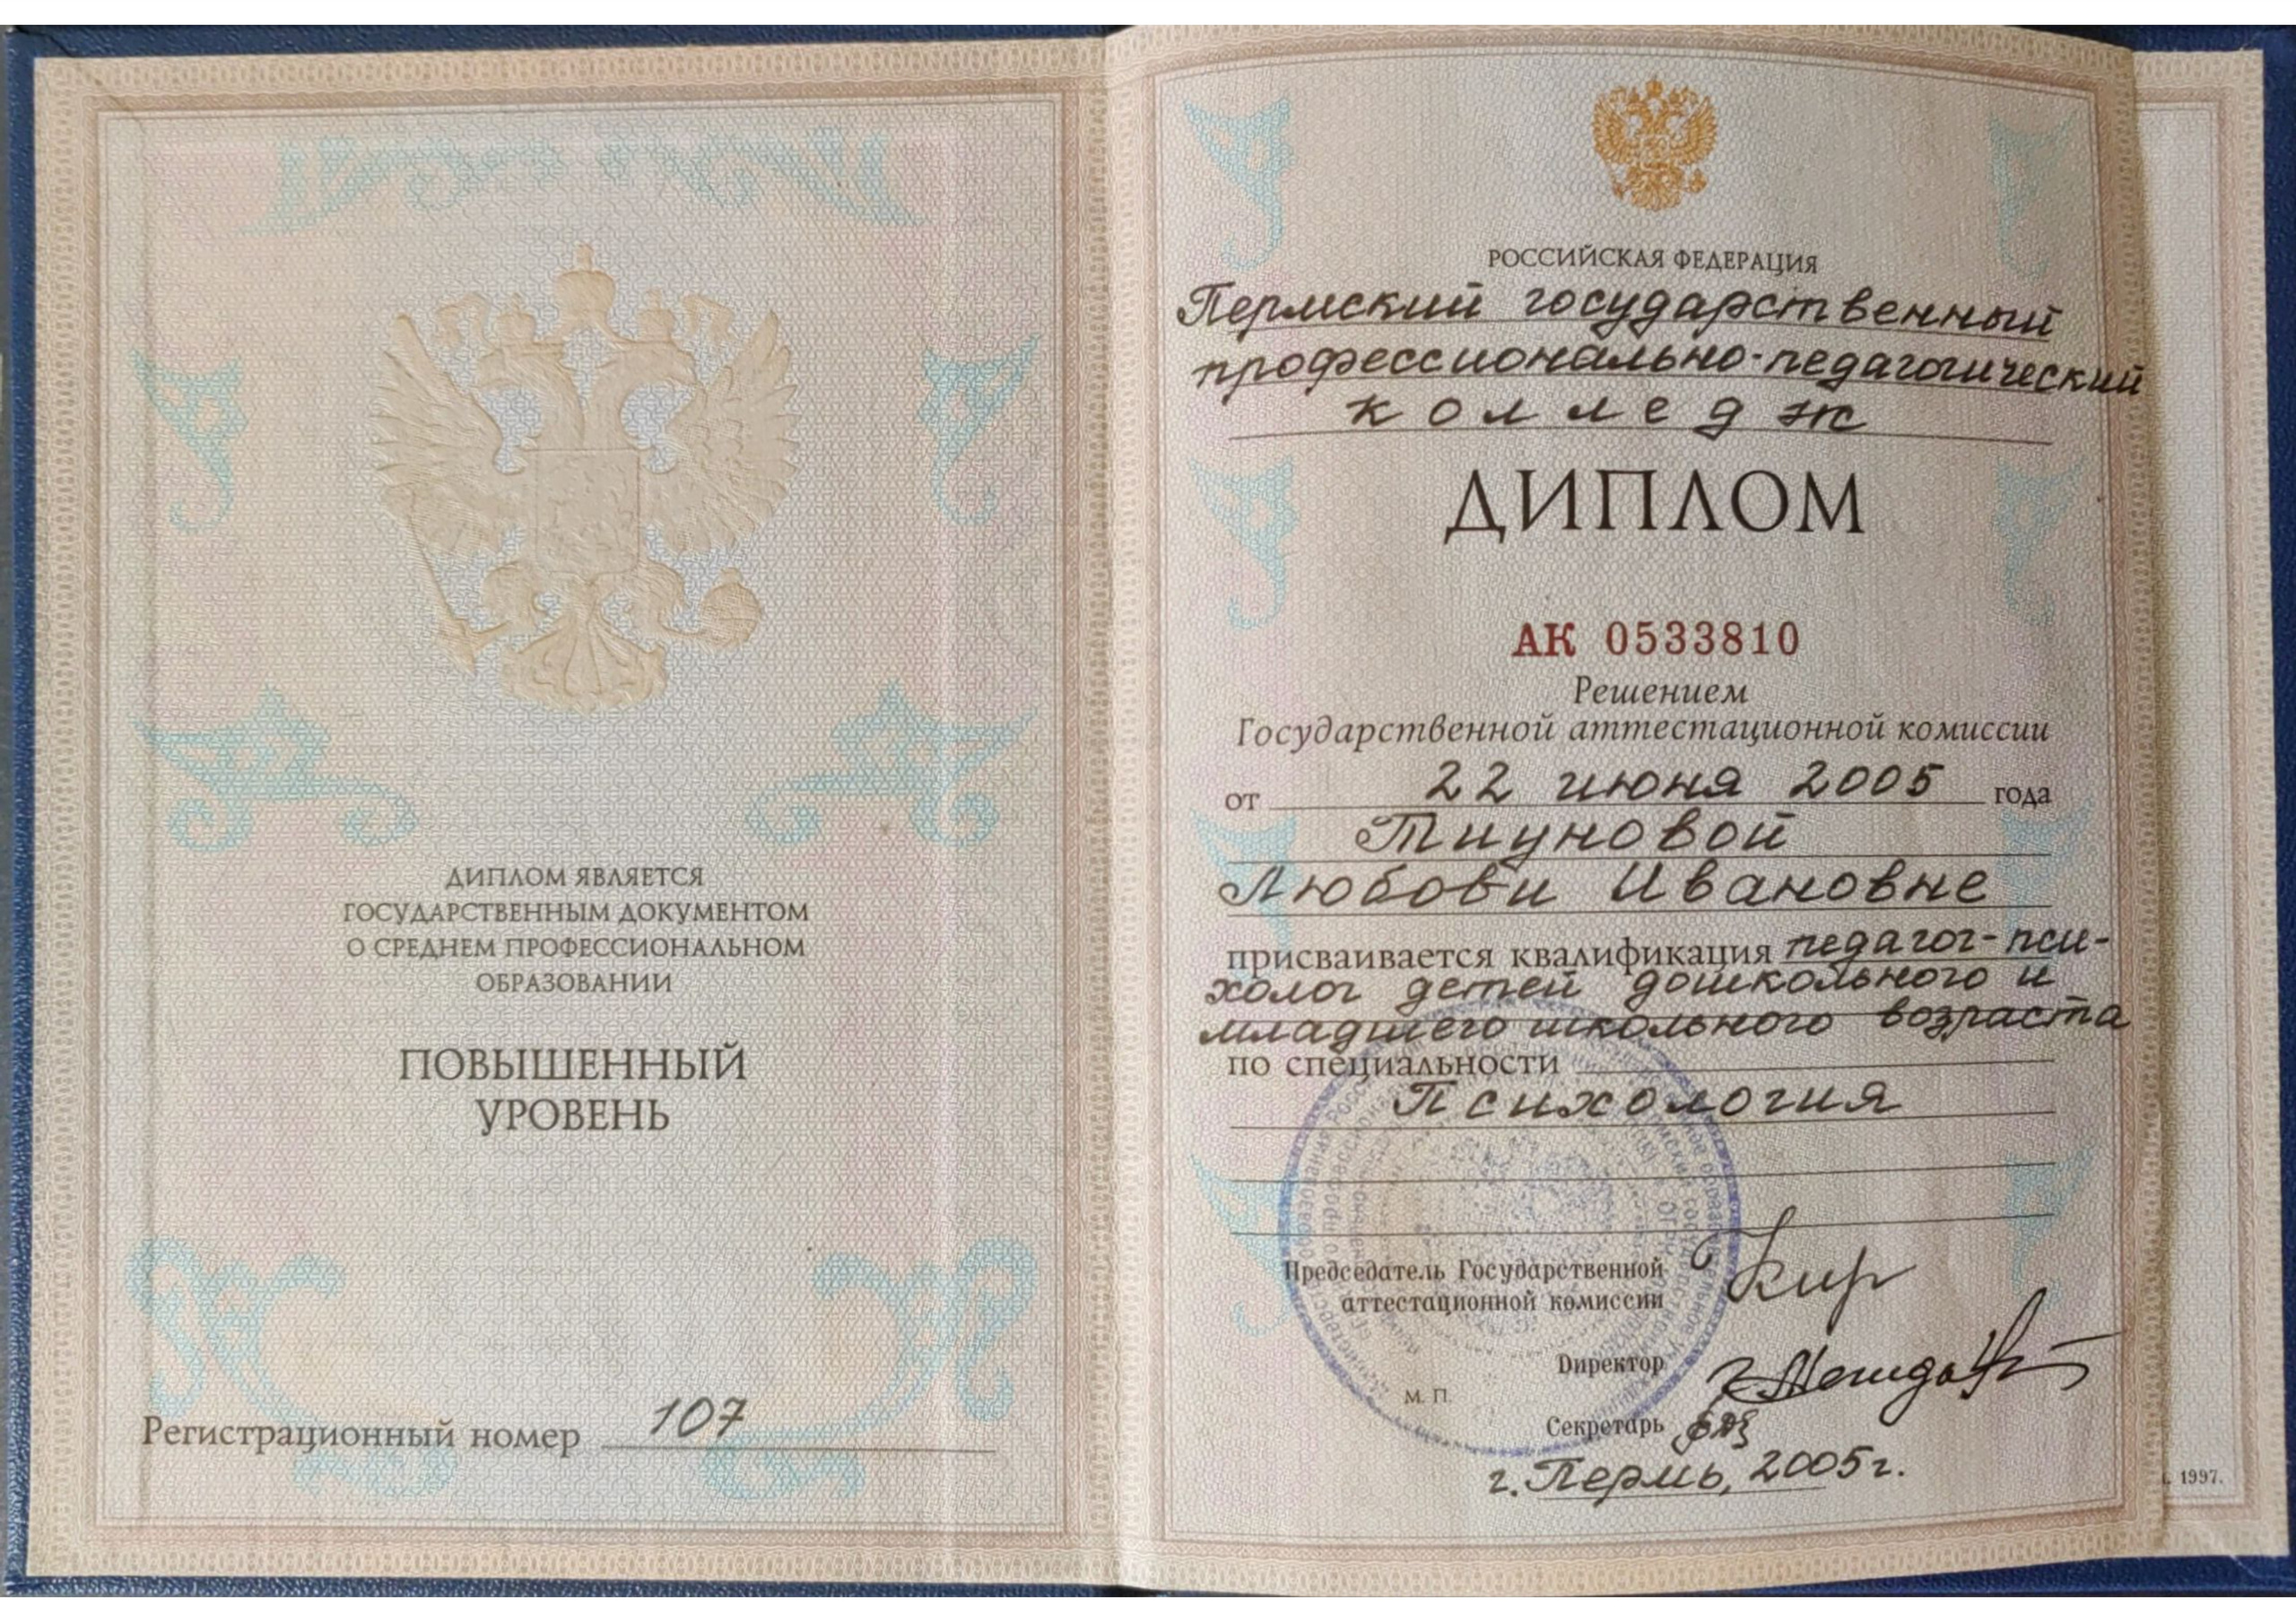 ДИПЛОМ ЯВЛЯЕТСЯ
ГОСУДАРСТВЕННЫМ ДОКУМЕНТОМ
О СРЕДНЕМ ПРОФЕССИОНАЛЬНОМ
ОБРАЗОВАНИИ
ПОВЫШЕННЫЙ
УРОВЕНЬ
Регистрационный номер 107
РОССИЙСКАЯ ФЕДЕРАЦИЯ
Пермский государственный
профессионально-педагогический
колледж
ДИПЛОМ
АК 0533810
Решением
Государственной аттестационной комиссии
от 22 июня 2005 года
Тиуновой
Любови Ивановне
присваивается квалификация педагог-пси-
холог детей дошкольного и
младшего школьного возраста
по специальности
Психология
Председатель Государственной
аттестационной комиссии
Директор
М. П.
Секретарь
г. Пермь, 2005г.
1997.